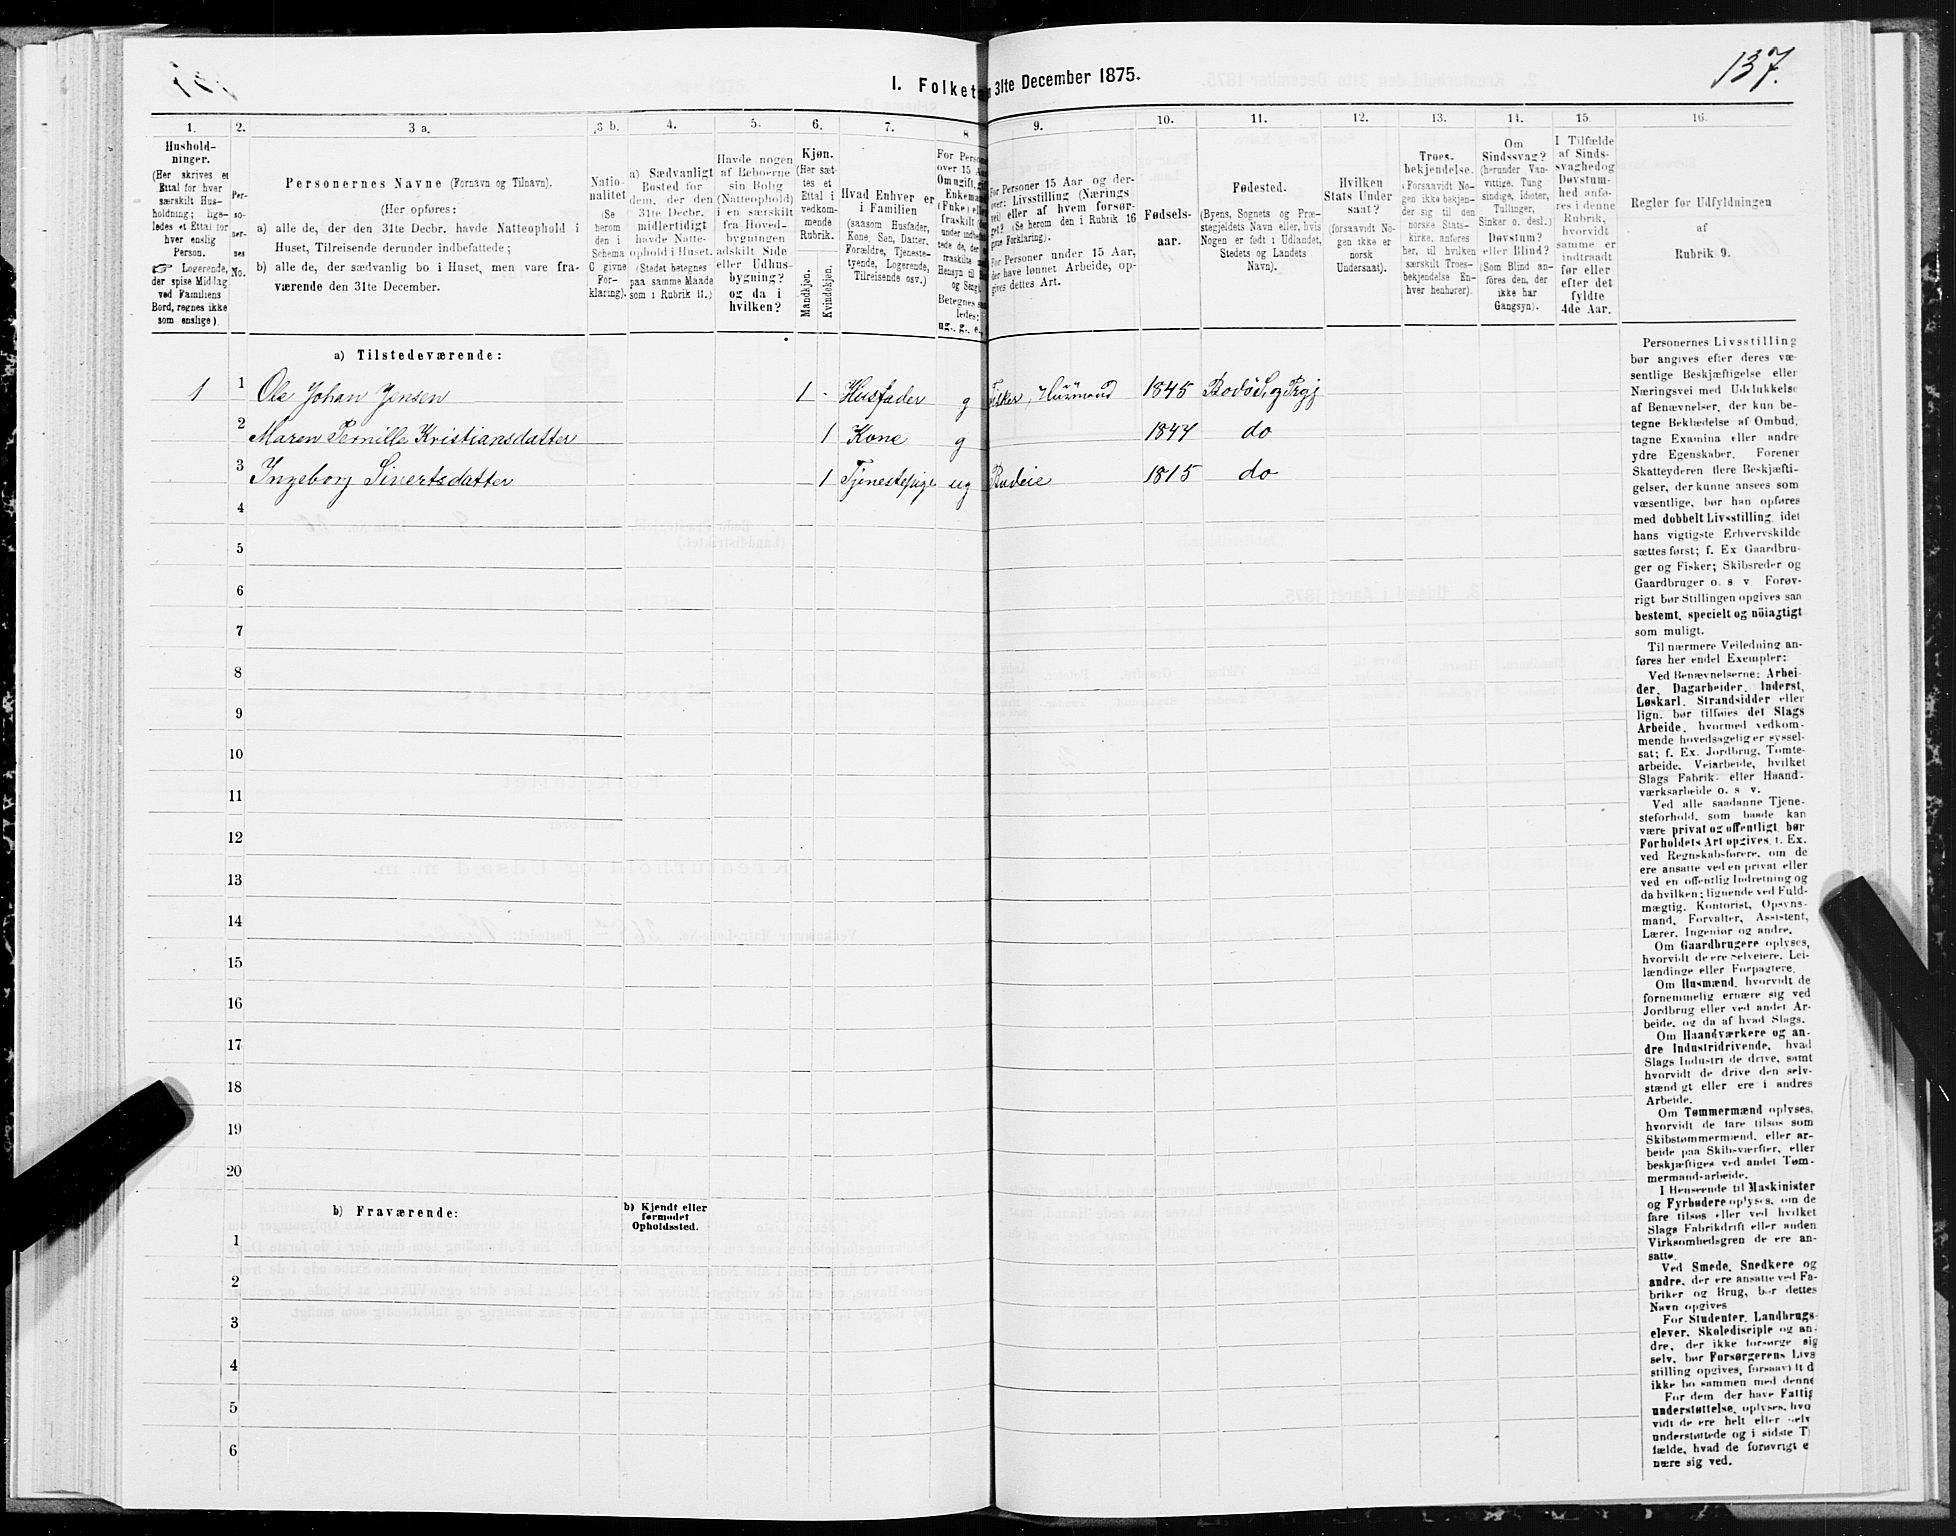 137.
I. Folket
31te December 1875.
1.
2.
3 a.
3 b.
4.
5.
6.
7.
8.
9.
10.
11.
12.
13.
14.
15.
16.
Hushold-
ninger.
(Her skrives et
Ettal for hver
særskilt Hus-
holdning; lige-
ledes et Ettal for
hver enslig
Person.
☞ Logerende,
der spise Middag
ved Familiens
Bord, regnes ikke
som enslige).
Per-
so-
ner-
nes
No.
Personernes Navne (Fornavn og Tilnavn).
(Her opføres:
a) alle de, der den 31te Decbr. havde Natteophold i
Huset, Tilreisende derunder indbefattede;
b) alle de, der sædvanlig bo i Huset, men vare fra-
værende den 31te December.
Natio-
nalitet
(Se
herom
den i
Schema
C givne
For-
klaring).
a) Sædvanligt
Bosted for
dem, der den
31te Decbr.
midlertidigt
havde Natte-
ophold i Huset.
(Stedet betegnes
paa samme Maade
som i Rubrik 11.)
Havde nogen
af Beboerne
sin Bolig
(Natteophold)
i en særskilt
fra Hoved-
bygningen
adskilt Side
eller Udhus-
bygning?
og da i
hvilken?
Kjøn.
(Her sæt-
tes et
Ettal i
vedkom-
mende
Rubrik.
Mandkjøn.
Kvindekjøn.
Hvad Enhver er
i Familien
(saasom Husfader,
Kone, Søn, Datter,
Forældre, Tjeneste-
tyende, Logerende,
Tilreisende osv.)
For Perso
over 15 Aar
Om ugift, gift
Enkemand
(Enke) eller
fraskilt
Betegnes saa-
ledes:
ug., g., e.,
For Personer 15 Aar og der-
over: Livsstilling (Nærings
vei) eller af hvem forsør-
get? (Se herom den i Rubrik 16
givne Forklaring).
For Personer under 15 Aar,
der have lønnet Arbeide, op-
gives dettes Art.
Fødsels-
aar.
Fødested.
(Byens, Sognets og Præ-
stegjeldets Navn eller, hvis
Nogen er født i Udlandet,
Stedets og Landets
Navn).
Hvilken
Stats Under
saat?
(forsaavidt No-
gen ikke er
norsk
Undersaat).
Troes-
bekjendelse.
(Forsaavidt No-
gen ikke bekjen-
der sig til den
norske Stats-
kirke, anføres
her, til hvilken
særskilt Troes-
bekjendelse En-
hver henhører).
Om
Sindssvag?
(herunder Van-
vittige, Tung
sindige, Idioter,
Tullinger,
Sinker o. desl.)
Døvstum?
eller Blind?
(Som Blind an-
føres den, der
ikke har
Gangsyn).
I Tilfælde
af Sinds-
svaghed og
Døvstum-
hed anfø-
res i denne
Rubrik,
hvorvidt
samme er
indtraadt
før eller
efter det
fyldte
4de Aar.
Regler for Udfyldningen
af
Rubrik 9.
a) Tilstedeværende:
1 1 Ole Johan Jensen 1 Husfader g Fisker, Husmand 1845 Bodø S. og Prgj
2 Maren Pernille Kristiansdatter 1 Kone g 1847 do
3 Ingeborg Sivertsdatter 1 Tjenestepige ug Budeie 1815 do
4
5
6
7
8
9
10
11
12
13
14
15
16
17
18
19
20
b) Fraværende:
b) Kjendt eller
formodet
Opholdssted.
1
2
3
4
5
6
Personernes Livsstilling
bør angives efter deres væ-
sentlige Beskjæftigelse eller
Næringsvei med Udelukkelse
af Benævnelser, der kun be-
tegne Beklædelse af Ombud,
tagne Examina eller andre
ydre Egenskaber. Forener
Skatteyderen flere Beskjæfti-
gelser, der kunne ansees som
væsentlige, bør han opføres
med dobbelt Livsstilling, idet
hans vigtigste Erhvervskilde
sættes først; f. Ex Gaardbru-
ger og Fisker; Skibsreder og
Gaardbruger o. s v. Forøv-
rigt bør Stillingen opgives saa
bestemt, specielt og nöiagtigt
som muligt.
Til nærmere Veiledning an-
føres her endel Exempler:
Ved Benævnelserne: Arbei-
der, Dagarbeider, Inderst,
Løskarl, Strandsidder eller
lign. bør tilføies det Slags
Arbeide, hvormed vedkom-
mende hovedsagelig er syssel-
sat; f. Ex. Jordbrug, Tomte-
arbeide, Veiarbeide, hvilket
Slags Fabrik- eller Haand-
værksarbeide o. s v.
Ved alle saadanne Tjene-
steforhold, som baade kan
være privat og offentligt, bør
Forholdets Art opgives, f. Ex.
ved Regnskabsførere, om de
ere ansatte ved en privat eller
ved en offentlig Indretning og
da hvilken; lignende ved Fuld-
mægtig, Kontorist, Opsyns-
mand, Forvalter, Assistent,
Lærer, Ingeniør og andre.
Om Gaardbrugere oplyses,
hvorvidt de ere Selveiere, Lei-
lændinge eller Forpagtere.
Om Husmænd, hvorvidt de
fornemmelig ernære sig ved
Jordbrug eller ved andet Ar-
beide, og da af hvad Slags.
Om Haandværkere og an-
dre Industridrivende, hvad
Slags Industri de drive, samt
hvorvidt de drive den selv-
stændigt eller ere i andres
Arbeide.
Om Tømmermænd oplyses,
hvorvidt de fare tilsøs som
Skibstømmermænd, eller ar-
beide paa Skibsværfter, eller
beskjæftiges ved andet Tøm-
mermand-arbeide.
I Henseende til Maskinister
og Fyrbødere oplyses, om de
fare tilsøs eller ved hvilket
Slags Fabrikdrift eller anden
Virksomhedsgren de ere an-
satte.
Ved Smede, Snedkere og
andre, der ere ansatte ved Fa-
briker og Brug, bør dettes
Navn opgives
For Studenter, Landbrugs-
elever, Skoledisciple og an-
dre, der ikke forsørge sig
selv, bør Forsørgerens Livs
stilling opgives, forsaavidt d
ikke bo sammen med denne
For dem, der have Fattig
understøttelse, oplyses, hvo
vidt de ere helt eller
understøttede og i sidste T
fælde, hvad de forøvrigt e
nære sig ved.